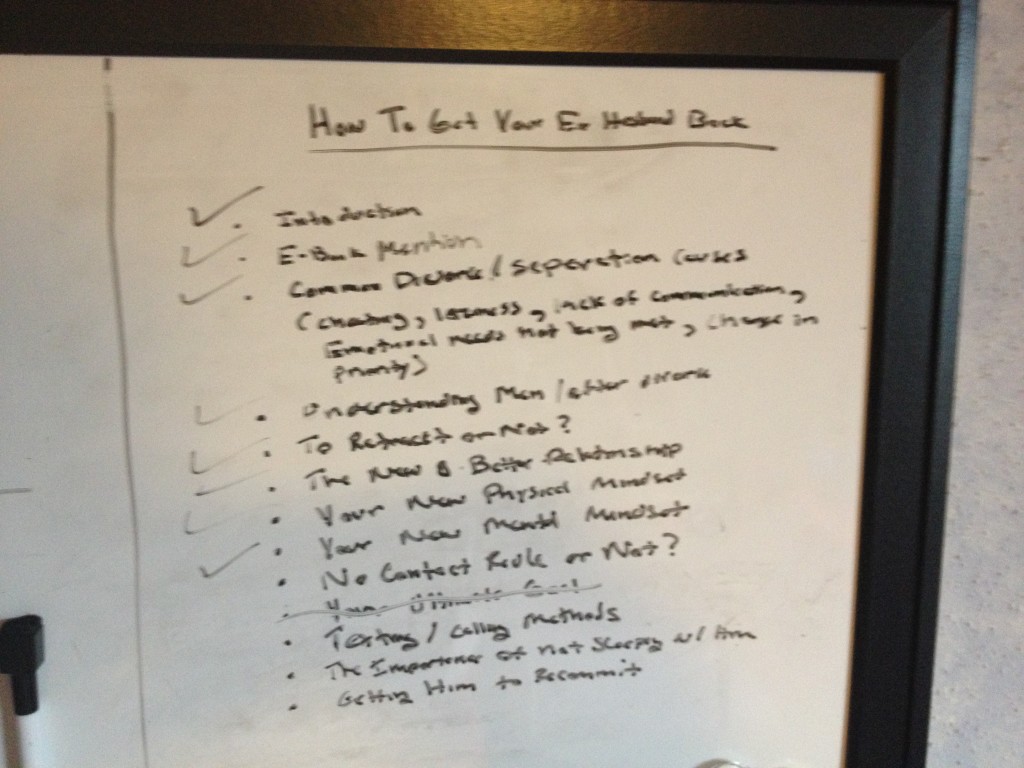 How To Get Your Ex Husband Back
Introduction
E-Book Mention
Common Divorce / Seperation Causes
(cheating, laziness, lack of communication,
Emotional needs not being met, change in
priority)
Understanding Men / after divorce
To Retreat or Not?
The New & Better Relationship
Your New Physical Mindset
Your New Mental Mindset
No Contact Rule or Not?
Your Ultimate Goal
Texting / Calling Methods
The Importance of not Sleeping w/ Him
Getting Him to Recommit